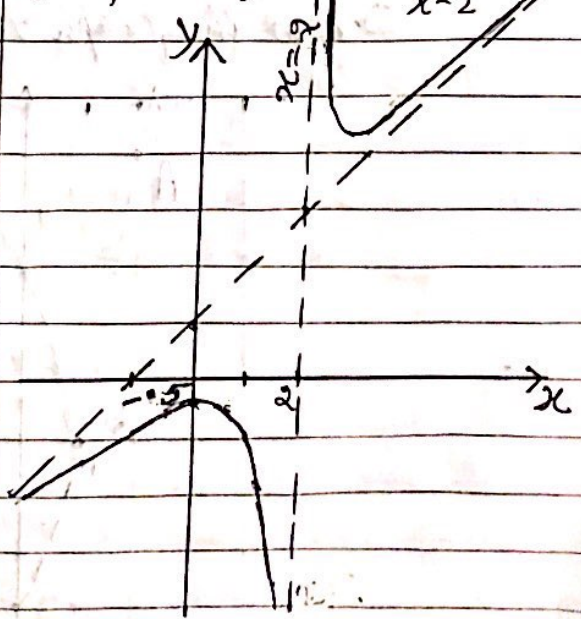 x-2
y
x=2
-.5
2
x